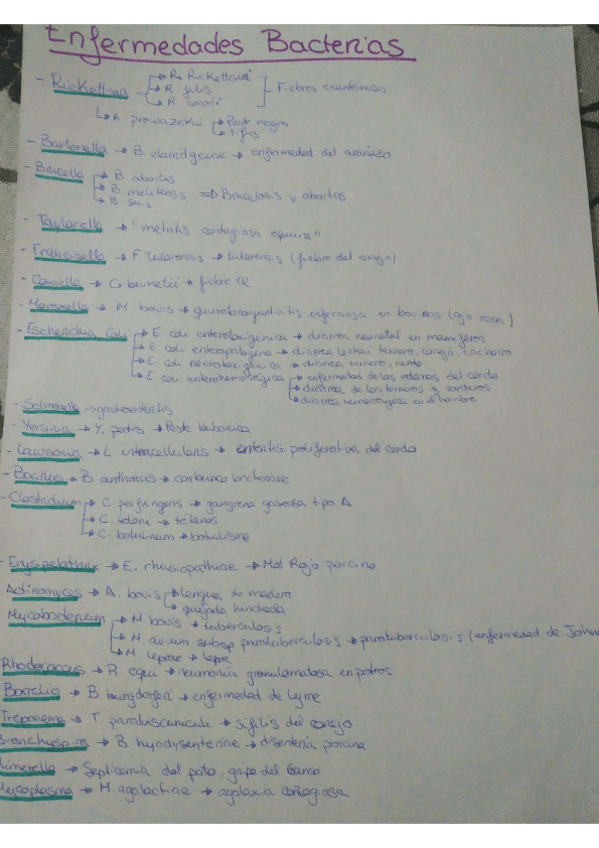 Enfermedades Bacterias
- Rickettsia → R. Rickettsii
→ R felis
→ R conorii
Fiebres exantémicas
↳ R prowazekii → Peste negra
→ tifus
- Bartonella → B. clarridgeiae → enfermedad del arañazo
- Brucella → B abortus
→ B melitensis ⇒ Brucelosis y abortos
→ B suis
- Taylorella → "metritis contagiosa equina"
- Francisella → F tularensis → tularensis (fiebre del conejo)
- Coxiella → C. burnetii → fiebre Q
- Moraxella → M. bovis → queratoconjuntivitis infecciosa en bovinos (ojo rosa)
- Escherichia Coli → E. coli enterotoxigénica → diarrea neonatal en mamíferos
→ E. coli enteropatógena → diarrea lechal ternero, conejo, cachorro
→ E. coli necrotoxigénica → diarrea ternero, cerdo
→ E. coli enterohemorrágica → enfermedad de los edemas del cerdo
→ diarrea de los terneros y corderos
→ diarrea hemorrágica en el hombre
- Salmonella → gastroenteritis
- Yersinia → Y. pestis → Peste bubónica
- Lawsonia → L intracellularis → enteritis proliferativa del cerdo
- Bacillus → B. anthracis → carbunco bacteridiano
- Clostridium → C. perfringens → gangrena gaseosa tipo A
→ C. tetani → tétanos
→ C. botulinum → botulismo
- Erysipelothrix → E. rhusiopathiae → Mal Rojo porcino
Actinomyces → A. bovis → lengua de madera
→ quijada hinchada
Mycobacterium → M bovis → tuberculosis
→ M avium subsp paratuberculosis → paratuberculosis (enfermedad de John
→ M leprae → lepra
Rhodococcus → R equi → neumonía granulomatosa en potros
Borrelia → B burgdorferi → enfermedad de lyme
Treponema → T paraluiscuniculi → sífilis del conejo
Branchyspira → B. hyodysenteriae → disentería porcina
Rimerella → Septicemia del pato, gripe del ganso
Mycoplasma → M agalactiae → agalaxia contagiosa